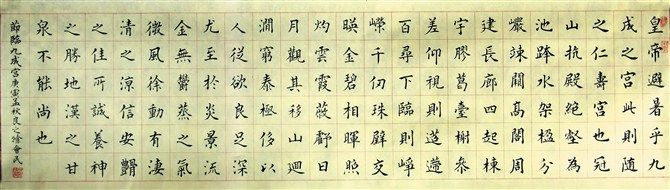 皇帝避暑乎九
成之宮此則隨
之仁壽宮也冠
山抗殿絕壑為
池跨水架楹分
巖竦闕高閣周
建長廊四起棟
宇膠葛臺榭參
差仰視則迢遰
百尋下臨則崢
嶸千仞珠璧交
暎金碧相暉照
灼雲霞蔽虧日
月觀其移山迴
澗窮泰極侈以
人從欲良足深
尤至於炎景流
金無鬱蒸之氣
微風徐動有淒
清之涼信安體
之佳所誠養神
之勝地漢之甘
泉不能尚也
節臨九成宮庚寅孟秋